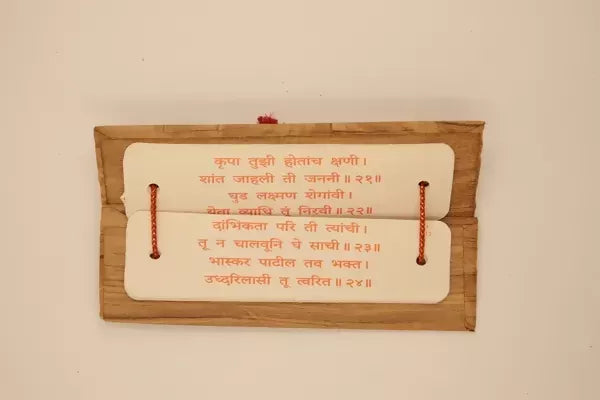 कृपा तुझी होतांच क्षणी।
शांत जाहली ती जननी॥२१॥
घुड लक्ष्मण शेगांवी।
येता व्याधि तूं निरवी॥२२॥
दांभिकता परि ती त्यांची।
तू न चालवूनि घे साची॥२३॥
भास्कर पाटील तव भक्त।
उध्दरिलासी तू त्वरित॥२४॥